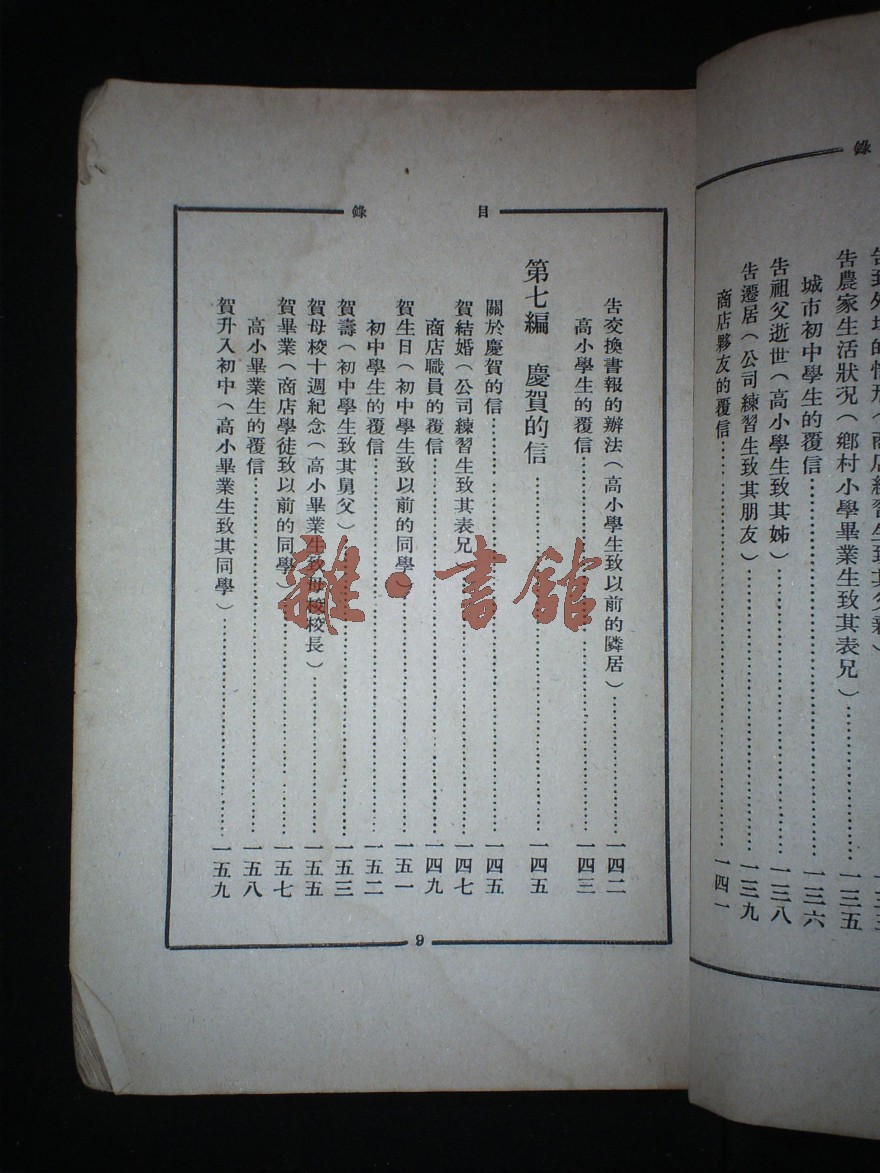 錄
告到外埠的情形(商店練習生致其父親)
告農家生活狀況(鄉村小學畢業生致其表兄)……一三五
城市初中學生的覆信……一三六
告祖父逝世(高小學生致其姊)……一三八
告遷居(公司練習生致其朋友)……一三九
商店夥友的覆信……一四一
目錄
告交換書報的辦法(高小學生致以前的隣居)……一四二
高小學生的覆信……一四三
第七編 慶賀的信……一四五
關於慶賀的信……一四五
賀結婚(公司練習生致其表兄)……一四七
商店職員的覆信……一四九
賀生日(初中學生致以前的同學)……一五一
初中學生的覆信……一五二
賀壽(初中學生致其舅父)……一五三
賀母校十週紀念(高小畢業生致母校校長)……一五五
賀畢業(商店學徒致以前的同學)……一五七
高小畢業生的覆信……一五八
賀升入初中(高小畢業生致其同學)……一五九
9
雜·書館